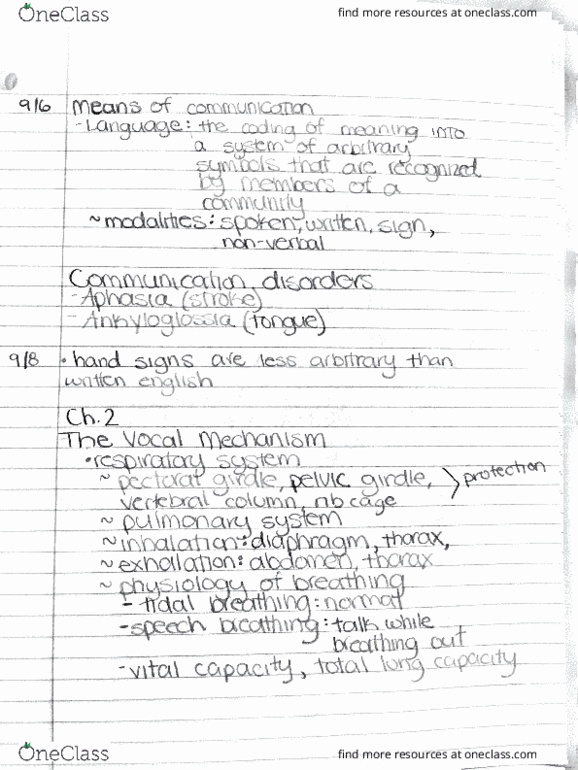 OneClass
find more resources at oneclass.com
9/6 Means of communication
- Language: the coding of meaning into
a system of arbitrary
symbols that are recognized
by members of a
community
~ modalities: spoken, written, sign,
non-verbal
Communication disorders
- Aphasia (stroke)
- Ankyloglossia (tongue)
9/8 • hand signs are less arbitrary than
written english
Ch. 2
The Vocal Mechanism
• respiratory system
~ pectoral girdle, pelvic girdle, > protection
vertebral column, rib cage
~ pulmonary system
~ inhalation: diaphragm, thorax,
~ exhallation: abdomen, thorax
~ physiology of breathing
- tidal breathing: normal
- speech breathing: talk while
breathing out
- vital capacity, total lung capacity
OneClass
find more resources at oneclass.com